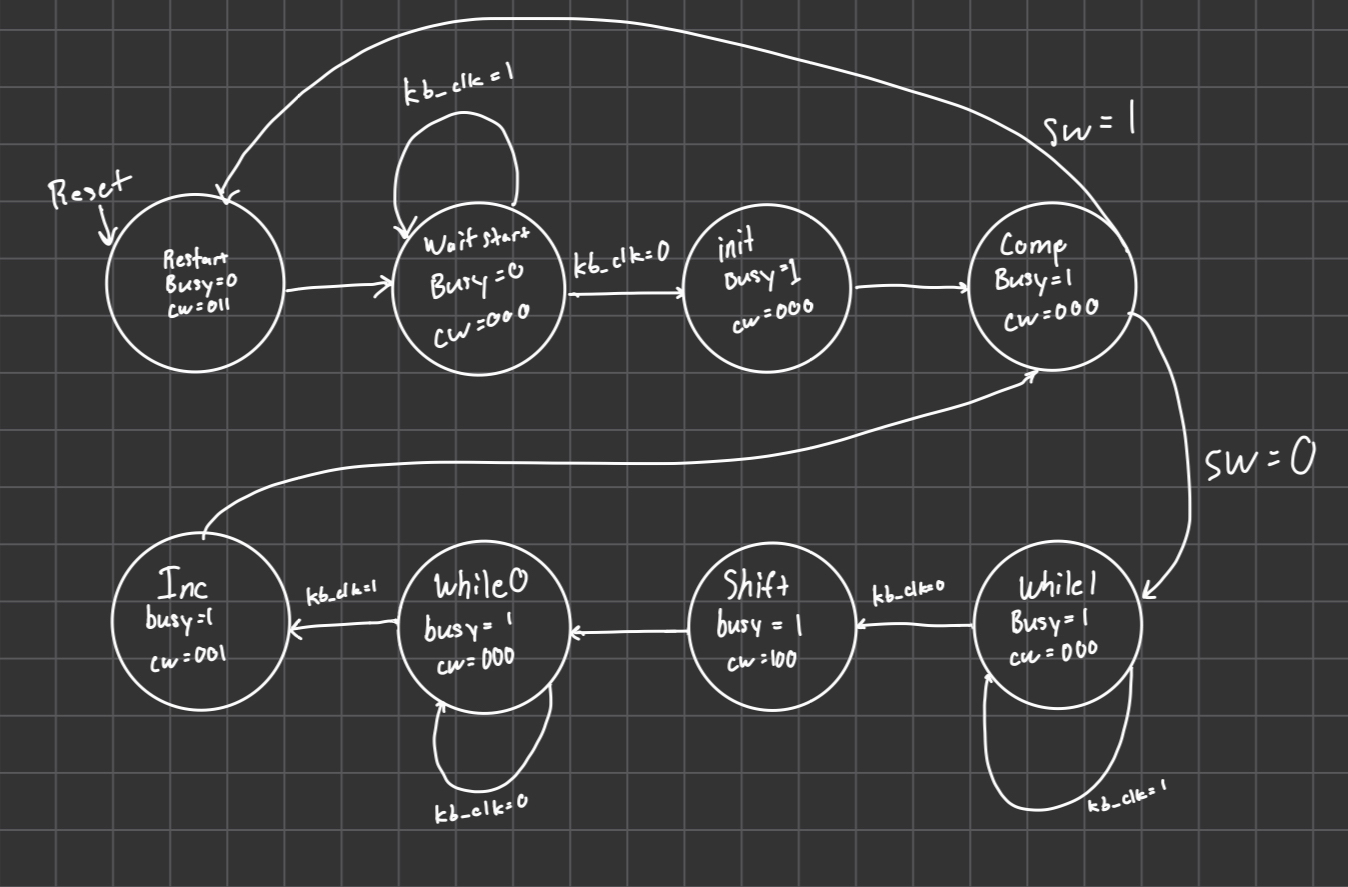 kb_clk=1
sw=1
Reset
Restart
Busy=0
cw=011
Wait start
Busy=0
cw=000
kb_clk=0
init
Busy=1
cw=000
Comp
Busy=1
cw=000
sw=0
Inc
busy=1
cw=001
kb_clk=1
While0
busy=1
cw=000
Shift
busy=1
cw=100
kb_clk=0
While1
Busy=1
cw=000
kb_clk=0
kb_clk=1